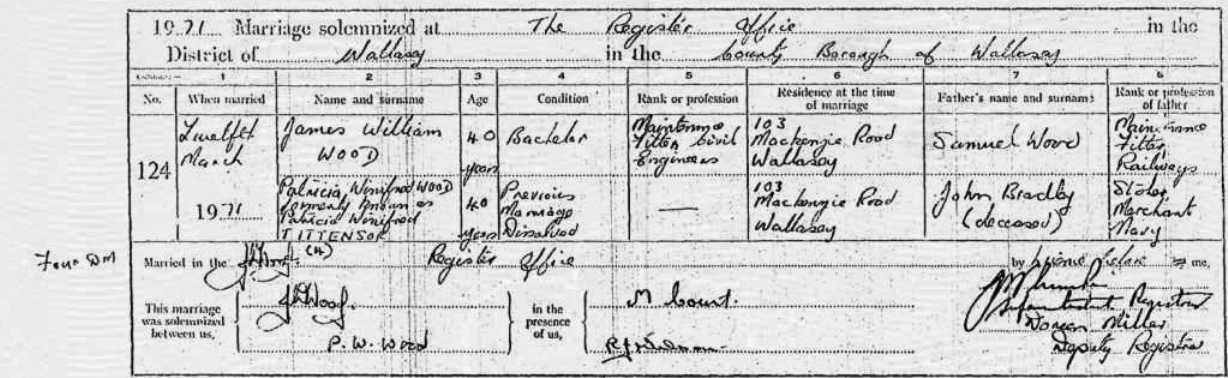 1971 Marriage solemnized at The Register Office in the
District of Wallasey in the County Borough of Wallasey
Columns:— 1 2 3 4 5 6 7 8
No. When married Name and surname Age Condition Rank or profession Residence at the time of marriage Father's name and surname Rank or profession of father
124
Twelfth
March
1971
James William
WOOD
40
years
Bachelor
Maintenance
Fitter Civil
Engineers
103
Mackenzie Road
Wallasey
Samuel Wood
Maintenance
Fitter
Railways
Patricia Winifred WOOD
formerly known as
Patricia Winifred
TITTENSOR
40
years
Previous
Marriage
Dissolved
—
103
Mackenzie Road
Wallasey
John Bradley
(deceased)
Stoker
Merchant
Navy
Four DM
Married in the Register Office by licence before me,
This marriage
was solemnized
between us,
J W Wood
P. W. Wood
in the
presence
of us,
M Count.
Superintendent Registrar
Doreen Miller
Deputy Registrar